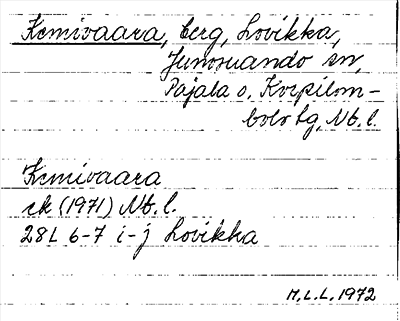 Kemivaara, berg, Lovikka,
Junosuando sn,
Pajala o. Korpilom-
bolo tg, Nb. l.
Kemivaara
ek (1971) Nb. l.
28L 6-7 i-j Lovikka
M.L.L. 1972